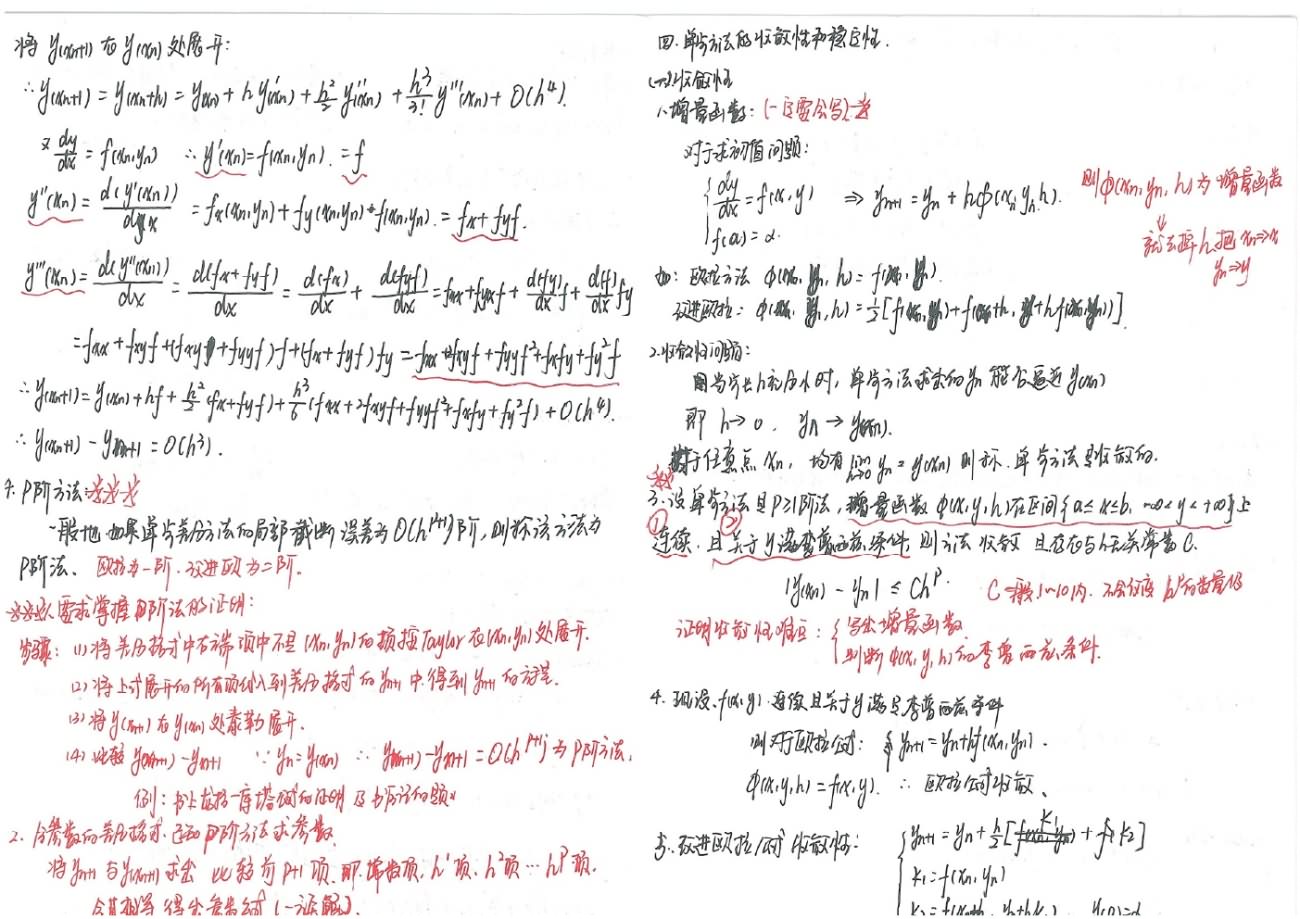 将 y(xn+1) 在 y(xn) 处展开:
∴ y(xn+1) = y(xn+h) = y(xn) + h y'(xn) + h²/2 y''(xn) + h³/3! y'''(xn) + O(h⁴).
又 dy/dx = f(xn,yn) ∴ y'(xn) = f(xn,yn). = f
y''(xn) = d(y'(xn))/dx = fx(xn,yn) + fy(xn,yn)·f(xn,yn). = fx + fyf.
y'''(xn) = d(y''(xn))/dx = d(fx+fyf)/dx = d(fx)/dx + d(fyf)/dx = fxx + fyxf + d(fy)/dx f + d(f)/dx fy
= fxx + fxyf + (fxy + fyyf)·f + (fx + fyf)fy = fxx + 2fxyf + fyyf² + fxfy + fy²f
∴ y(xn+1) = y(xn) + hf + h²/2 (fx+fyf) + h³/6 (fxx + 2fxyf + fyyf² + fxfy + fy²f) + O(h⁴).
∴ y(xn+1) - yn+1 = O(h³).
7. P阶方法:
一般地 如果单步差分方法的局部截断误差为 O(h^{p+1})阶, 则称该方法为
P阶法、 欧拉为一阶. 改进欧为二阶.
要求掌握P阶法的证明:
步骤: (1) 将差分格式中右端项中不是 (xn,yn) 的项按Taylor 在(xn,yn) 处展开.
(2) 将上式展开的所有项代入到差分格式的 yn+1 中. 得到 yn+1 的方程.
(3) 将 y(xn+1) 在 y(xn) 处泰勒展开.
(4) 比较 y(xn+1) - yn+1 ∵ yn = y(xn) ∴ y(xn+1) - yn+1 = O(h^{p+1}) 为P阶方法,
例: 书上龙格-库塔公式的证明 及书后的题
2. 含参数的差分格式. 已知P阶方法求参数.
将 yn+1 与 y(xn+1) 求出 比较前 p+1 项. 即. 常数项, h¹项. h²项 … h^p 项.
令其相等 得出参数公式 (一în解).
四. 单步方法的收敛性和稳定性.
(一) 收敛性
1. 增量函数: (一定要会写)
对于求初值问题:
{ dy/dx = f(x,y)
f(a) = α.
⇒ yn+1 = yn + hφ(xn, yn, h).
则φ(xn,yn,h) 为增量函数
⇓
就去掉h, 把 xn⇒x
yn⇒y
如: 欧拉方法 φ(x, y, h) = f(x, y).
改进欧拉: φ(x, y, h) = ½[f(x,y) + f(x+h, y+hf(x,y))].
2. 收敛性问题:
即 h→0, yn → y(xn).
对于任意点 xn, 均有 lim h→0 yn = y(xn) 则称. 单步方法是收敛的.
3. 设单步方法是P≥1阶法, 增量函数 φ(x,y,h) 在区间{a≤x≤b, -∞<y<+∞}上
① ②
连续. 且关于y满足李普西兹条件, 则方法收敛 且存在与h无关常数 C.
|y(xn) - yn| ≤ Ch^p. C一般1~10内.
证明收敛性: { 写出增量函数.
判断φ(x,y,h)的李普西兹条件.
4. 现设. f(x,y) 连续且关于y满足李普西兹条件
则对于欧拉公式: { yn+1 = yn + hf(xn,yn).
φ(x,y,h) = f(x,y). ∴ 欧拉公式收敛、
5. 改进欧拉公式 收敛性:
yn+1 = yn + h/2[K1 + K2]
K1 = f(xn,yn)